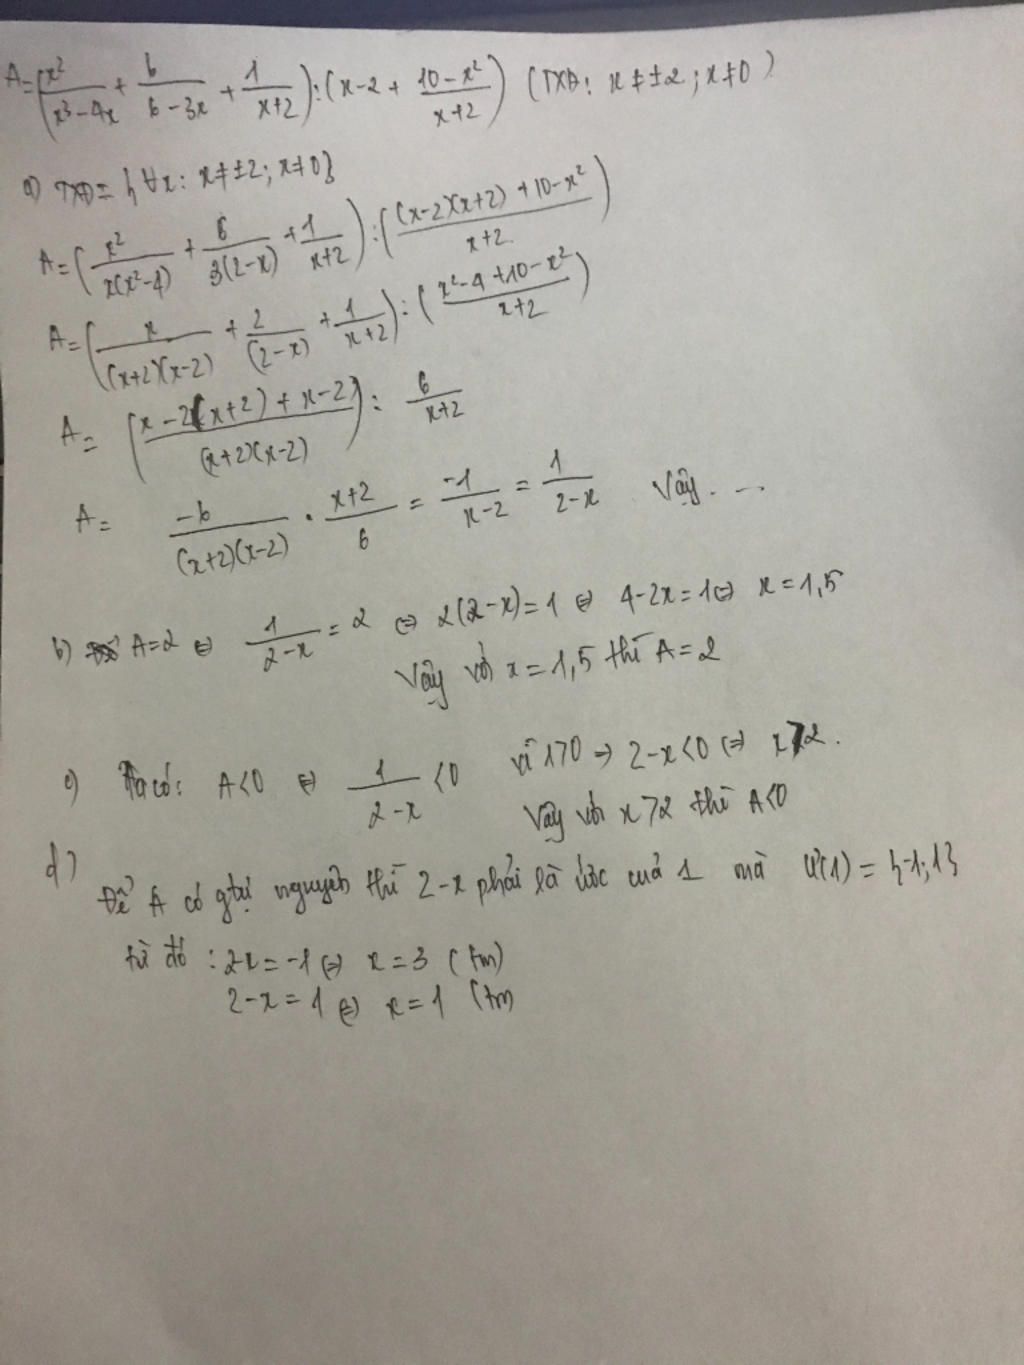 A=(x²/(x³-4x) + 6/(6-3x) + 1/(x+2)):(x-2 + (10-x²)/(x+2)) (TXĐ: x≠±2; x≠0)
a) TXĐ={∀x: x≠±2; x≠0}
A=(x²/(x(x²-4)) + 6/(3(2-x)) + 1/(x+2)):(((x-2)(x+2)+10-x²)/(x+2))
A=(x/((x+2)(x-2)) + 2/(2-x) + 1/(x+2)):((x²-4+10-x²)/(x+2))
A= ((x-2(x+2)+x-2)/((x+2)(x-2))): 6/(x+2)
A= -6/((x+2)(x-2)) . (x+2)/6 = -1/(x-2) = 1/(2-x) Vậy...
b) A=2 ⇔ 1/(2-x) = 2 ⇔ 2(2-x)=1 ⇔ 4-2x=1⇔ x=1,5
Vậy với x=1,5 thì A=2
c) Ta có: A<0 ⇔ 1/(2-x) <0 vì 1>0 ⇒ 2-x<0 ⇔ x>2.
Vậy với x>2 thì A<0
d)
Để A có gtrị nguyên thì 2-x phải là ước cuả 1 mà Ư(1) = {-1;1}
từ đó : 2-x=-1⇔ x=3 (tm)
2-x=1 ⇔ x=1 (tm